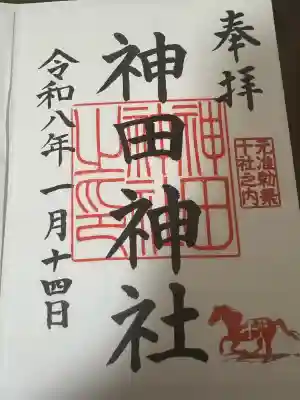 奉拝
元准勅祭
十社之内
神田神社
神田
神社
之印
令和八年一月十四日